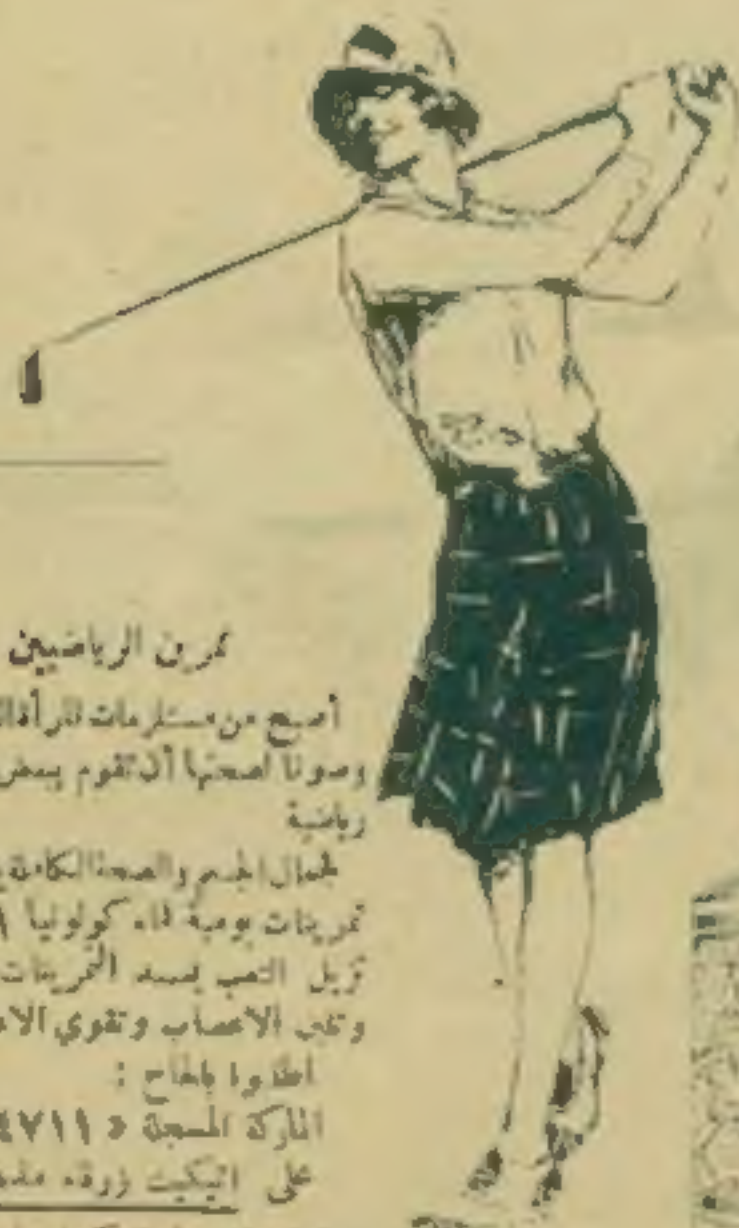 تمرين الرياضيين
أصبح من مستلزمات المرأة
وصونا لصحتها أن تقوم ببعض
رياضية
فجمال الجسم والصحة الكاملة
تمرينات يومية فماء كولونيا
تزيل التعب بعد التمرينات
الاعصاب وتقوي
اطلبوا بالحاح :
الماركة المسجلة « ٤٧١١
على اتيكيت زرقاء